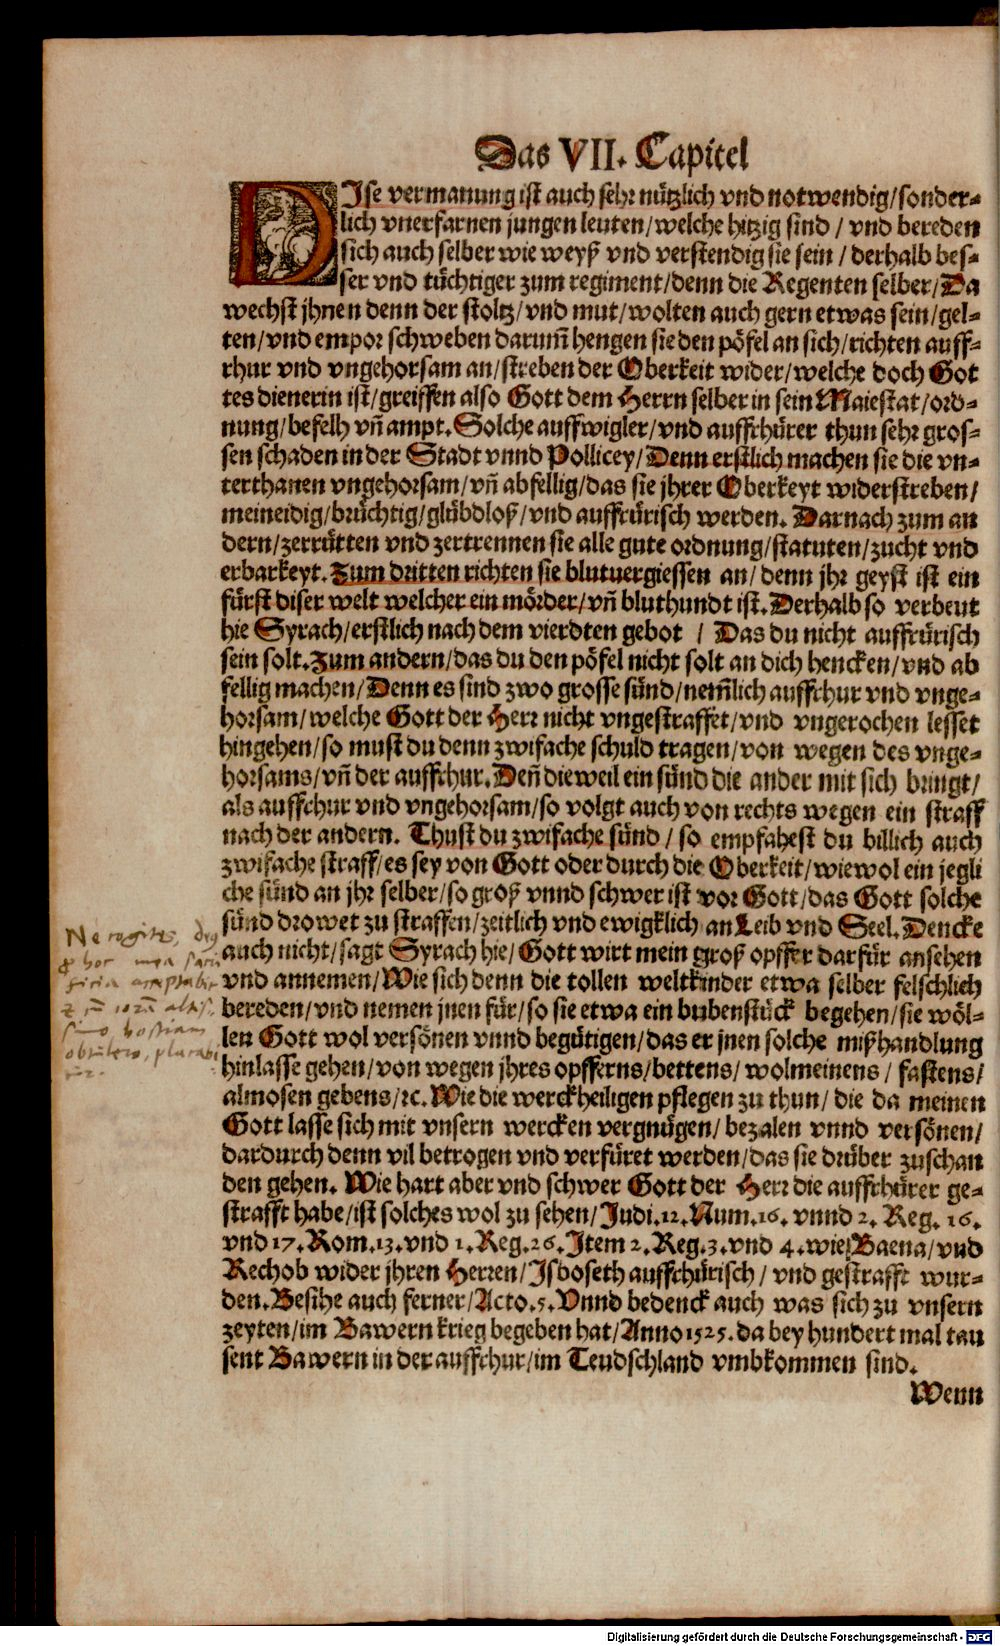 Das VII. Capitel
DIse vermanung ist auch sehr nützlich vnd notwendig/sonder-
lich vnerfarnen jungen leuten/welche hitzig sind / vnd bereden
sich auch selber wie weyß vnd verstendig sie sein / derhalb bes-
ser vnd tüchtiger zum regiment/denn die Regenten selber/Da
wechst jhnen denn der stoltz/vnd mut/wolten auch gern etwas sein/gel-
ten/vnd empor schweben darum̃ hengen sie den pöfel an sich/richten auff-
rhur vnd vngehorsam an/streben der Oberkeit wider/welche doch Got
tes dienerin ist/greiffen also Gott dem Herrn selber in sein Maiestat/ord-
nung/befelh vñ ampt. Solche auffwigler/vnd auffrhürer thun sehr gros-
sen schaden in der Stadt vnnd Pollicey/Denn erstlich machen sie die vn-
terthanen vngehorsam/vñ abfellig/das sie jhrer Oberkeyt widerstreben/
meineidig/brüchtig/glübdloß/vnd auffrürisch werden. Darnach zum an
dern/zerrütten vnd zertrennen sie alle gute ordnung/statuten/zucht vnd
erbarkeyt. Zum dritten richten sie blutuergiessen an/denn jhr geyst ist ein
fürst diser welt welcher ein mörder/vñ bluthundt ist. Derhalb so verbeut
hie Syrach/erstlich nach dem vierdten gebot / Das du nicht auffrürisch
sein solt. Zum andern/das du den pöfel nicht solt an dich hencken/vnd ab
fellig machen/Denn es sind zwo grosse sünd/nem̃lich auffrhur vnd vnge-
horsam/welche Gott der Herr nicht vngestraffet/vnd vngerochen lesset
hingehen/so must du denn zwifache schuld tragen/von wegen des vnge-
horsams/vñ der auffrhur. Deñ dieweil ein sünd die ander mit sich bringt/
als auffrhur vnd vngehorsam/so volgt auch von rechts wegen ein straff
nach der andern. Thust du zwifache sünd / so empfahest du billich auch
zwifache straff/es sey von Gott oder durch die Oberkeit/wiewol ein jegli
che sünd an jhr selber/so groß vnnd schwer ist vor Gott/das Gott solche
sünd drowet zu straffen/zeitlich vnd ewigklich an Leib vnd Seel. Dencke
auch nicht/sagt Syrach hie/Gott wirt mein groß opffer darfür ansehen
vnd annemen/Wie sich denn die tollen weltkinder etwa selber felschlich
bereden/vnd nemen jnen für/so sie etwa ein bubenstück begehen/sie wöl-
len Gott wol versönen vnnd begütigen/das er jnen solche mißhandlung
hinlasse gehen/von wegen jhres opfferns/bettens/wolmeinens / fastens/
almosen gebens/ꝛc. Wie die werckheiligen pflegen zu thun/ die da meinen
Gott lasse sich mit vnsern wercken vergnügen/bezalen vnnd versönen/
dardurch denn vil betrogen vnd verfüret werden/das sie drüber zuschan
den gehen. Wie hart aber vnd schwer Gott der Herr die auffrhürer ge-
strafft habe/ist solches wol zu sehen/Judi.12. Num.16. vnnd 2. Reg. 16.
vnd 17. Rom.13. vnd 1. Reg.26. Item 2. Reg.3. vnd 4. wie Baena/vnd
Rechob wider jhren Herren/Isboseth auffrhürisch / vnd gestrafft wur-
den. Besihe auch ferner/Acto.5. Vnnd bedenck auch was sich zu vnsern
zeyten/im Bawern krieg begeben hat/Anno 1525. da bey hundert mal tau
sent Bawern in der auffrhur/im Teudschland vmbkommen sind.
Wenn
Ne cogites,
hoc mea sacri
ficia
altis-
simo, hostiam
obtulero, placabi
tur.
Digitalisierung gefördert durch die Deutsche Forschungsgemeinschaft - DFG